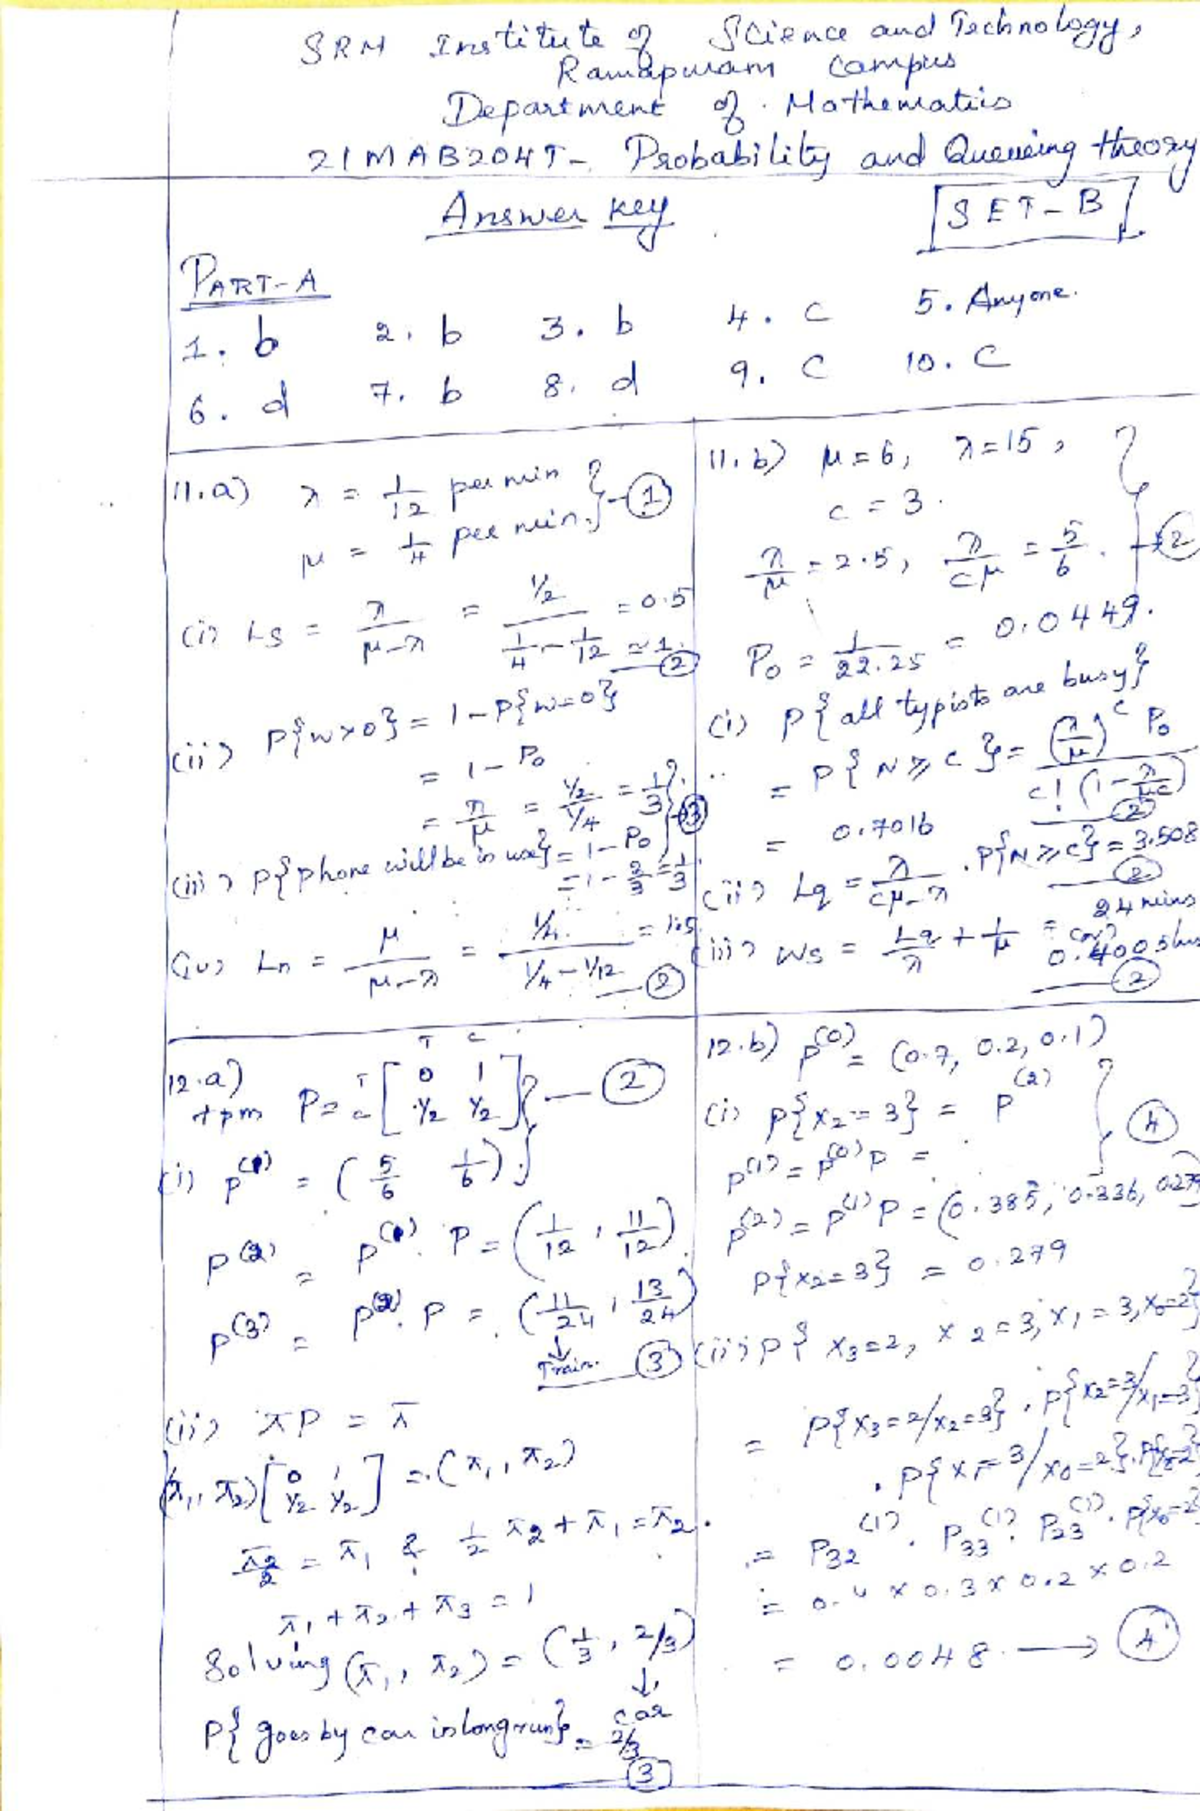 SRM Institute of Science and Technology,
Ramapuram Campus
Department of Mathematics
21MAB204T - Probability and Queueing theory
Answer key
SET-B
PART-A
1. b 2. b 3. b 4. c 5. Anyone.
6. d 7. b 8. d 9. c 10. c
11.a) λ = 1/12 per min
μ = 1/4 per min. } - (1)
(i) Ls = λ/(μ-λ) = (1/12)/(1/4 - 1/12) = 0.5
(2)
(ii) P{w>0} = 1 - P{w=0}
= 1 - P0
= λ/μ = (1/12)/(1/4) = 1/3.
(iii) P{phone will be in use} = 1 - P0
= 1 - 2/3 = 1/3. (3)
(iv) Ln = μ/(μ-λ) = (1/4)/(1/4 - 1/12) = 1.5
(2)
11.b) μ = 6, λ = 15,
c = 3.
λ/μ = 2.5, λ/cμ = 5/6. (2)
P0 = 1/22.25 = 0.0449.
(i) P{all typists are busy}
= P{N ≥ c} = (λ/μ)^c P0 / c!(1 - λ/μc)
(2)
= 0.7016
(ii) Lq = λ/(cμ-λ) . P{N ≥ c} = 3.508
(2)
(iii) Ws = Lq/λ + 1/μ = 24 mins
(or)
0.4005 hrs
(2)
12.a) T C
tpm P = T C [0 1
1/2 1/2] } - (2)
(i) P^(1) = (5/6 1/6)
P^(2) = P^(1). P = (1/12, 11/12)
P^(3) = P^(2). P = (11/24, 13/24)
↓
Train. (3)
(ii) πP = π
(π1, π2) [0 1
1/2 1/2] = (π1, π2)
π2/2 = π1 & 1/2 π2 + π1 = π2.
π1 + π2 + π3 = 1
Solving (π1, π2) = (1/3, 2/3)
↓
car
P{goes by car in long run} = 2/3
(3)
12.b) P^(0) = (0.7, 0.2, 0.1)
(i) P{X2 = 3} = P^(2)
P^(1) = P^(0) P =
(4)
P^(2) = P^(1) P = (0.385, 0.336, 0.279)
P{X2 = 3} = 0.279
(ii) P{X3=2, X2=3, X1=3, X0=2}
= P{X3=2/X2=3} . P{X2=3/X1=3}
. P{X1=3/X0=2}.P{X0=2}
= P32^(1) . P33^(1) . P23^(1) . P{X0=2}
= 0.4 x 0.3 x 0.2 x 0.2
= 0.0048. → (4)